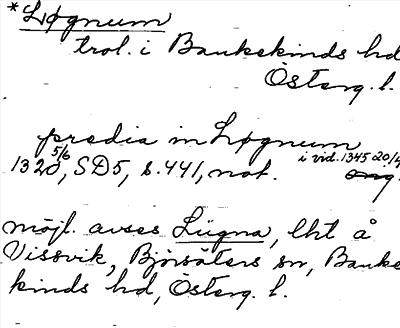 *Løgnum
trol. i Bankekinds hd
Österg. l.
predia in Løgnum
1320 5/6, SD5, s. 441, not. i vid. 1345 20/4
möjl. avses Lügna, lht å
Vissvik, Björsäters sn, Banke
kinds hd, Österg. l.